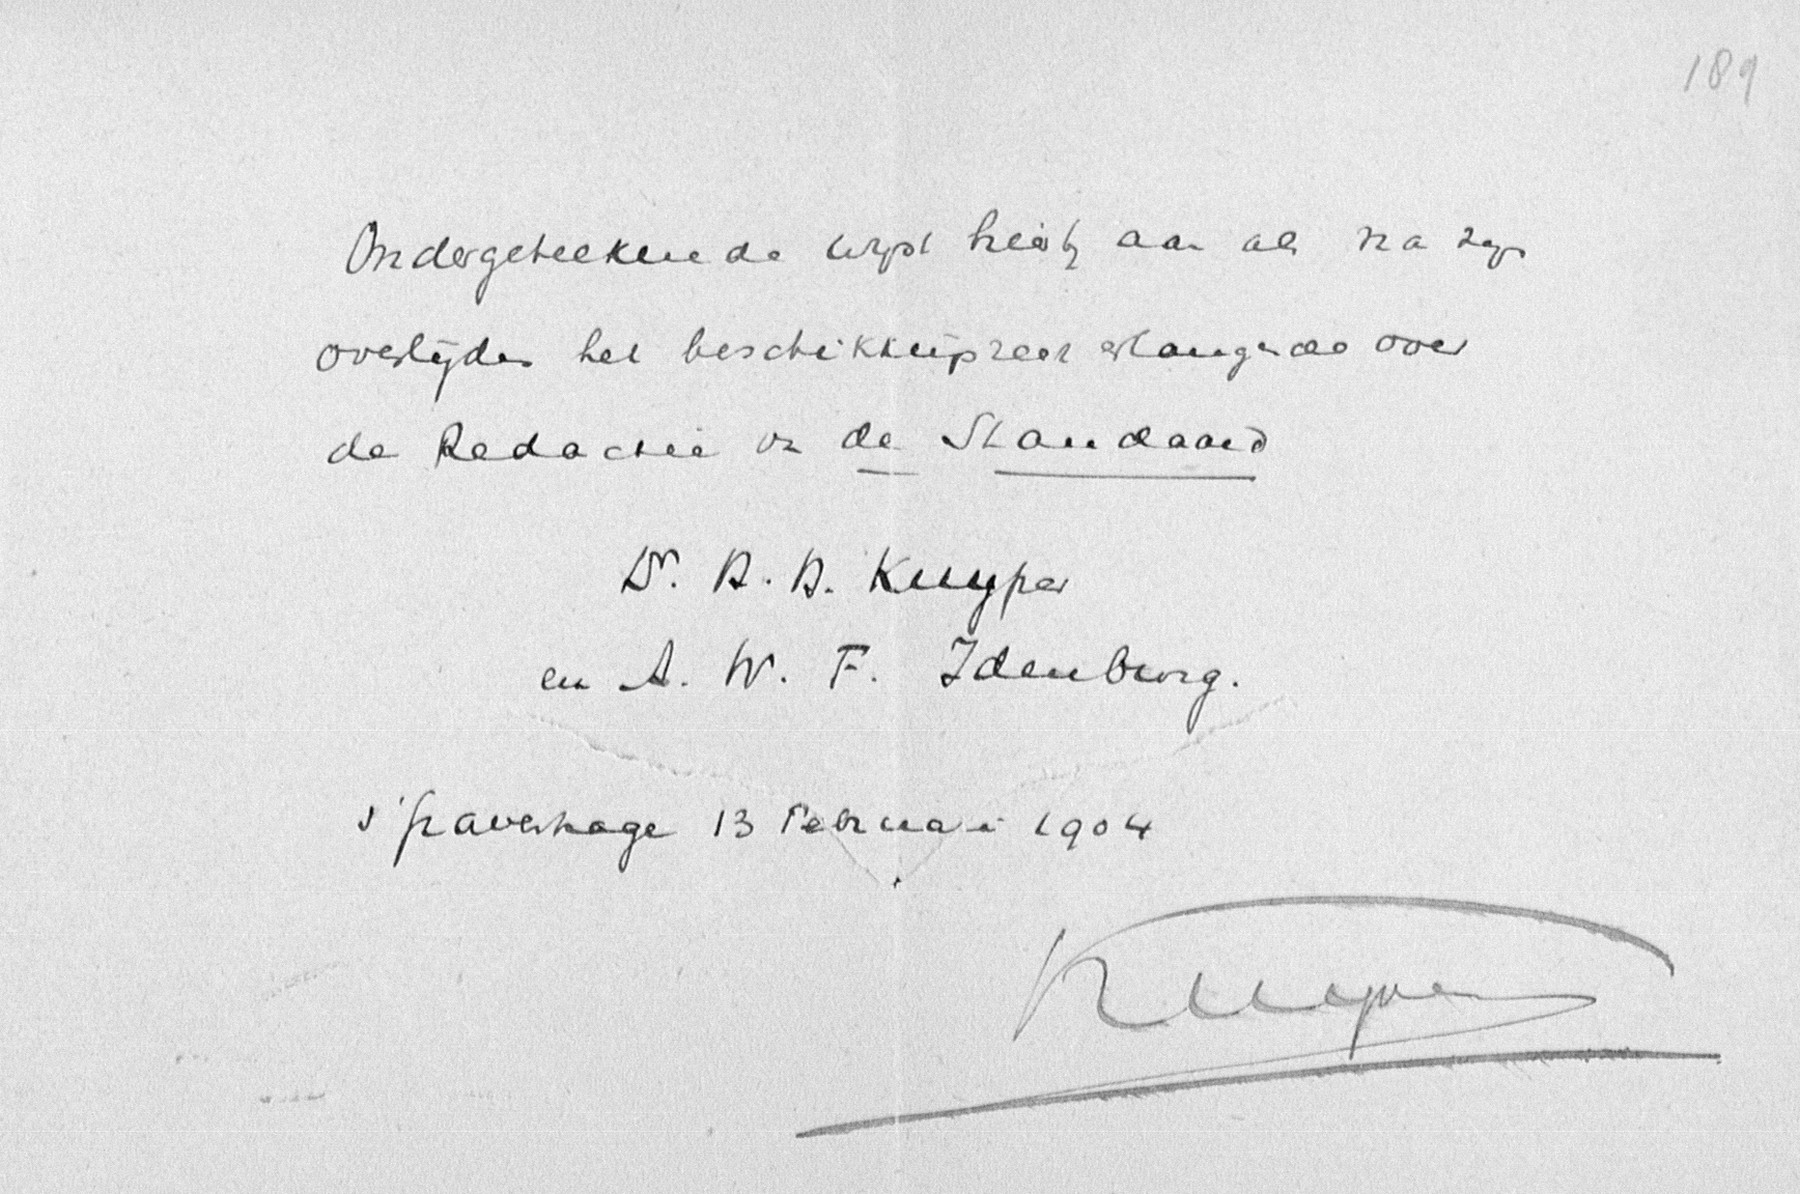 189
Ondergeteekende wijst hierbij aan als na zijn
overlijden het beschikkingsrecht erlangende over
de Redactie van de Standaard
Dr. H. H. Kuyper
en A. W. F. Idenburg.
s'Gravenhage 13 Februari 1904
Kuyper